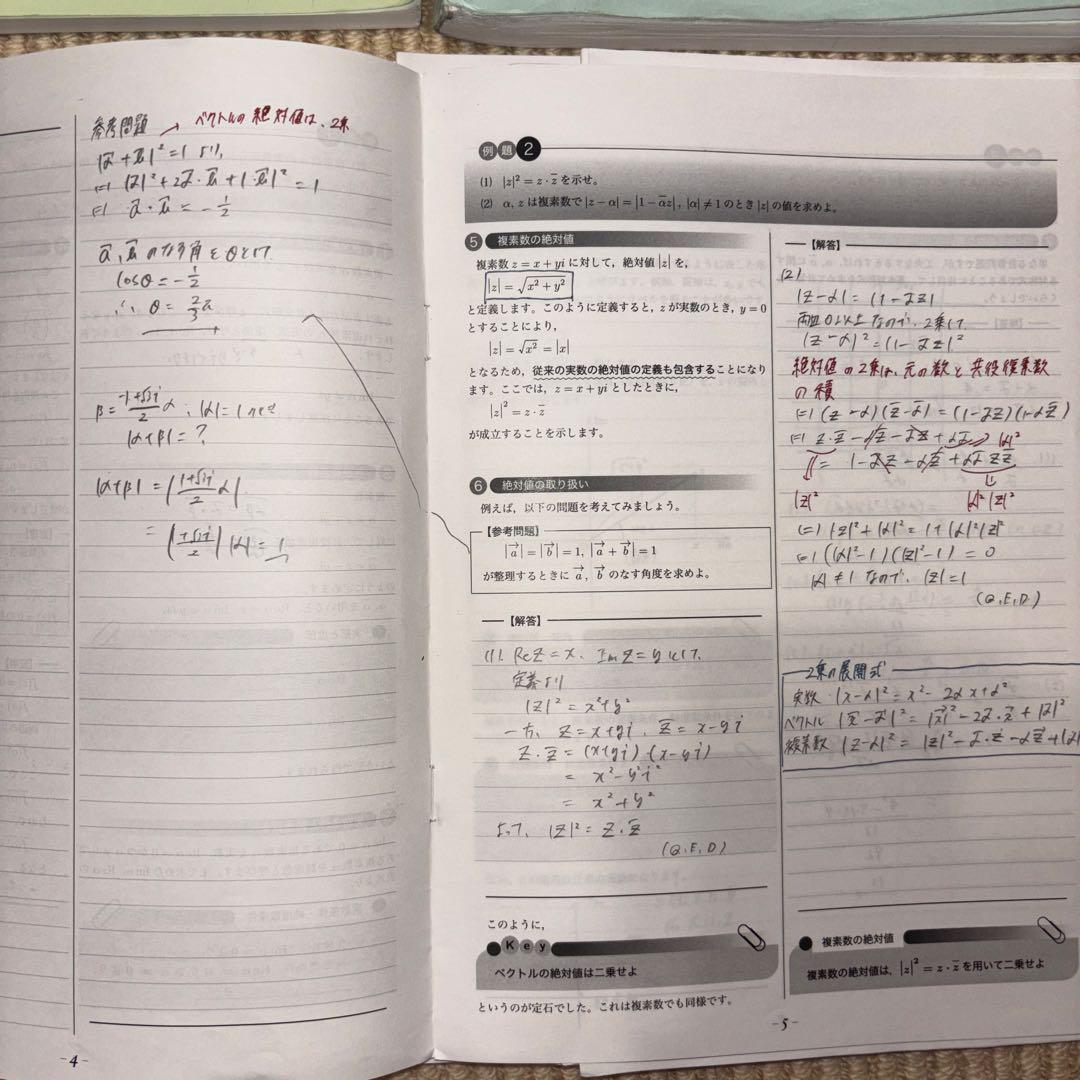 参考問題 → ベクトルの絶対値は、2乗
|a⃗+b⃗|²=1 より、
|a⃗|²+2a⃗・b⃗+|b⃗|²=1
a⃗・b⃗=-1/2
a⃗, b⃗ のなす角をθとして
cosθ=-1/2
∴ θ=2/3π
β=(-1+√3i)/2 α : |α|=1 のとき
|α+β|=?
|α+β|=|(1+√3i)/2 α|
=|(1+√3i)/2||α|=1
-4-
例題2
(1) |z|²=z・z̄ を示せ。
(2) α, z は複素数で |z-α|=|1-ᾱz|, |α|≠1 のとき |z| の値を求めよ。
5 複素数の絶対値
複素数 z=x+yi に対して，絶対値 |z| を，
|z|=√(x²+y²)
と定義します。このように定義すると，z が実数のとき，y=0
とすることにより，
|z|=√x²=|x|
となるため，従来の実数の絶対値の定義も包含することになり
ます。ここでは，z=x+yi としたときに，
|z|²=z・z̄
が成立することを示します。
6 絶対値の取り扱い
例えば，以下の問題を考えてみましょう。
【参考問題】
|a⃗|=|b⃗|=1, |a⃗+b⃗|=1
が整理するときに a⃗, b⃗ のなす角度を求めよ。
【解答】
(1). Re z=x, Im z=y として、
定義より
|z|²=x²+y²
一方、z=x+yi, z̄=x-yi
z・z̄=(x+yi)・(x-yi)
=x²-y²i²
=x²+y²
よって、|z|²=z・z̄
(Q.E.D)
このように，
Key
ベクトルの絶対値は二乗せよ
というのが定石でした。これは複素数でも同様です。
【解答】
(2)
|z-α|=|1-ᾱz|
両辺0以上なので、2乗して
|z-α|²=|1-ᾱz|²
絶対値の2乗は、元の数と共役複素数
の積
(z-α)(z̄-ᾱ)=(1-ᾱz)(1-αz̄)
z・z̄-αz̄-ᾱz+αᾱ |α|²
=1-ᾱz-αz̄+αᾱzz̄
|z|² |α|²|z|²
|z|²+|α|²=1+|α|²|z|²
(|α|²-1)(|z|²-1)=0
|α|≠1 なので、|z|=1
(Q.E.D)
2乗の展開式
実数 |x-α|²=x²-2αx+α²
ベクトル |x⃗-α⃗|²=|x⃗|²-2α⃗・x⃗+|α⃗|²
複素数 |z-α|²=|z|²-ᾱ・z-αz̄+|α|
複素数の絶対値
複素数の絶対値は，|z|²=z・z̄ を用いて二乗せよ
-5-